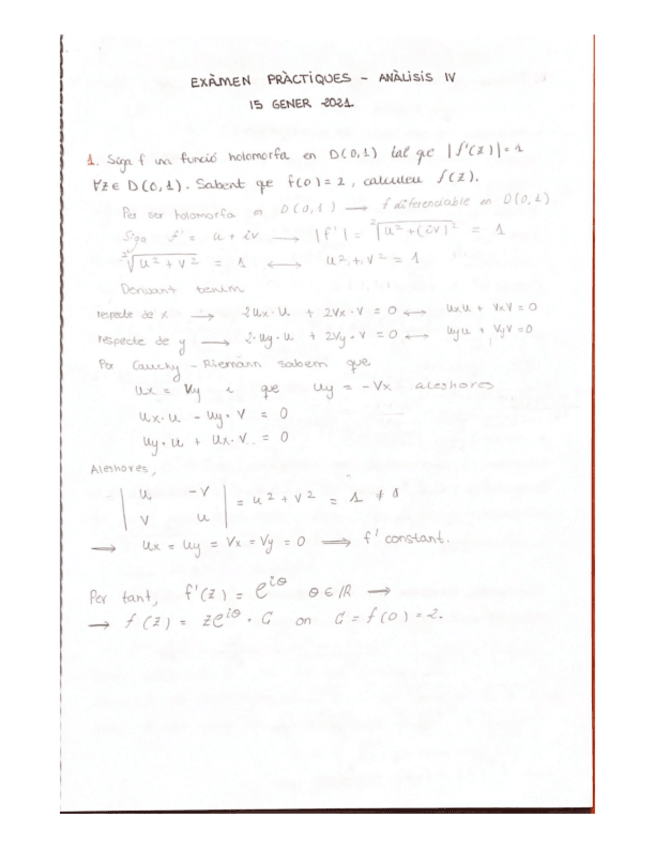 EXÀMEN PRÀCTIQUES - ANÀLISIS IV
15 GENER 2021.
1. Siga f una funció holomorfa en D(0,1) tal que |f'(z)| = 1
∀z ∈ D(0,1). Sabent que f(0) = 2, calculeu f(z).
Per ser holomorfa en D(0,1) ⟶ f diferenciable en D(0,1)
Siga f' = u + iv ⟶ |f'| = ²√u² + (iv)² = 1
²√u² + v² = 1 ⟷ u² + v² = 1
Derivant tenim
respecte de x ⟶ 2ux·u + 2vx·v = 0 ⟷ uxu + vxv = 0
respecte de y ⟶ 2·uy·u + 2vy·v = 0 ⟷ uyu + vyv = 0
Per Cauchy-Riemann sabem que
ux = vy i que uy = -vx aleshores
ux·u - uy·v = 0
uy·u + ux·v = 0
Aleshores,
| u -v |
| v u | = u² + v² = 1 ≠ 0
⟹ ux = uy = vx = vy = 0 ⟹ f' constant.
Per tant, f'(z) = e^iθ θ ∈ ℝ ⟶
⟶ f(z) = ze^iθ · C on C = f(0) = 2.